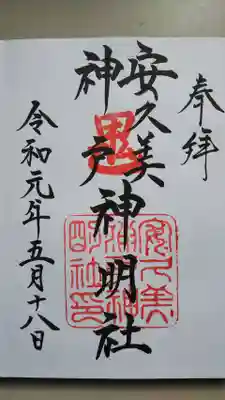 奉拝
安久美
神戸神明社
令和元年五月十八日
安久美神戸神明社印